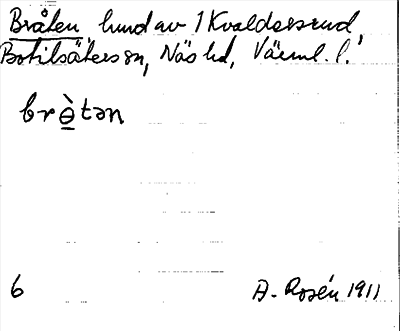 Bråten hund av 1 Kvaldersrud,
Botilsäters sn, Näs hd, Värml. l.
brò̱tən
6 A. Rosén 1911